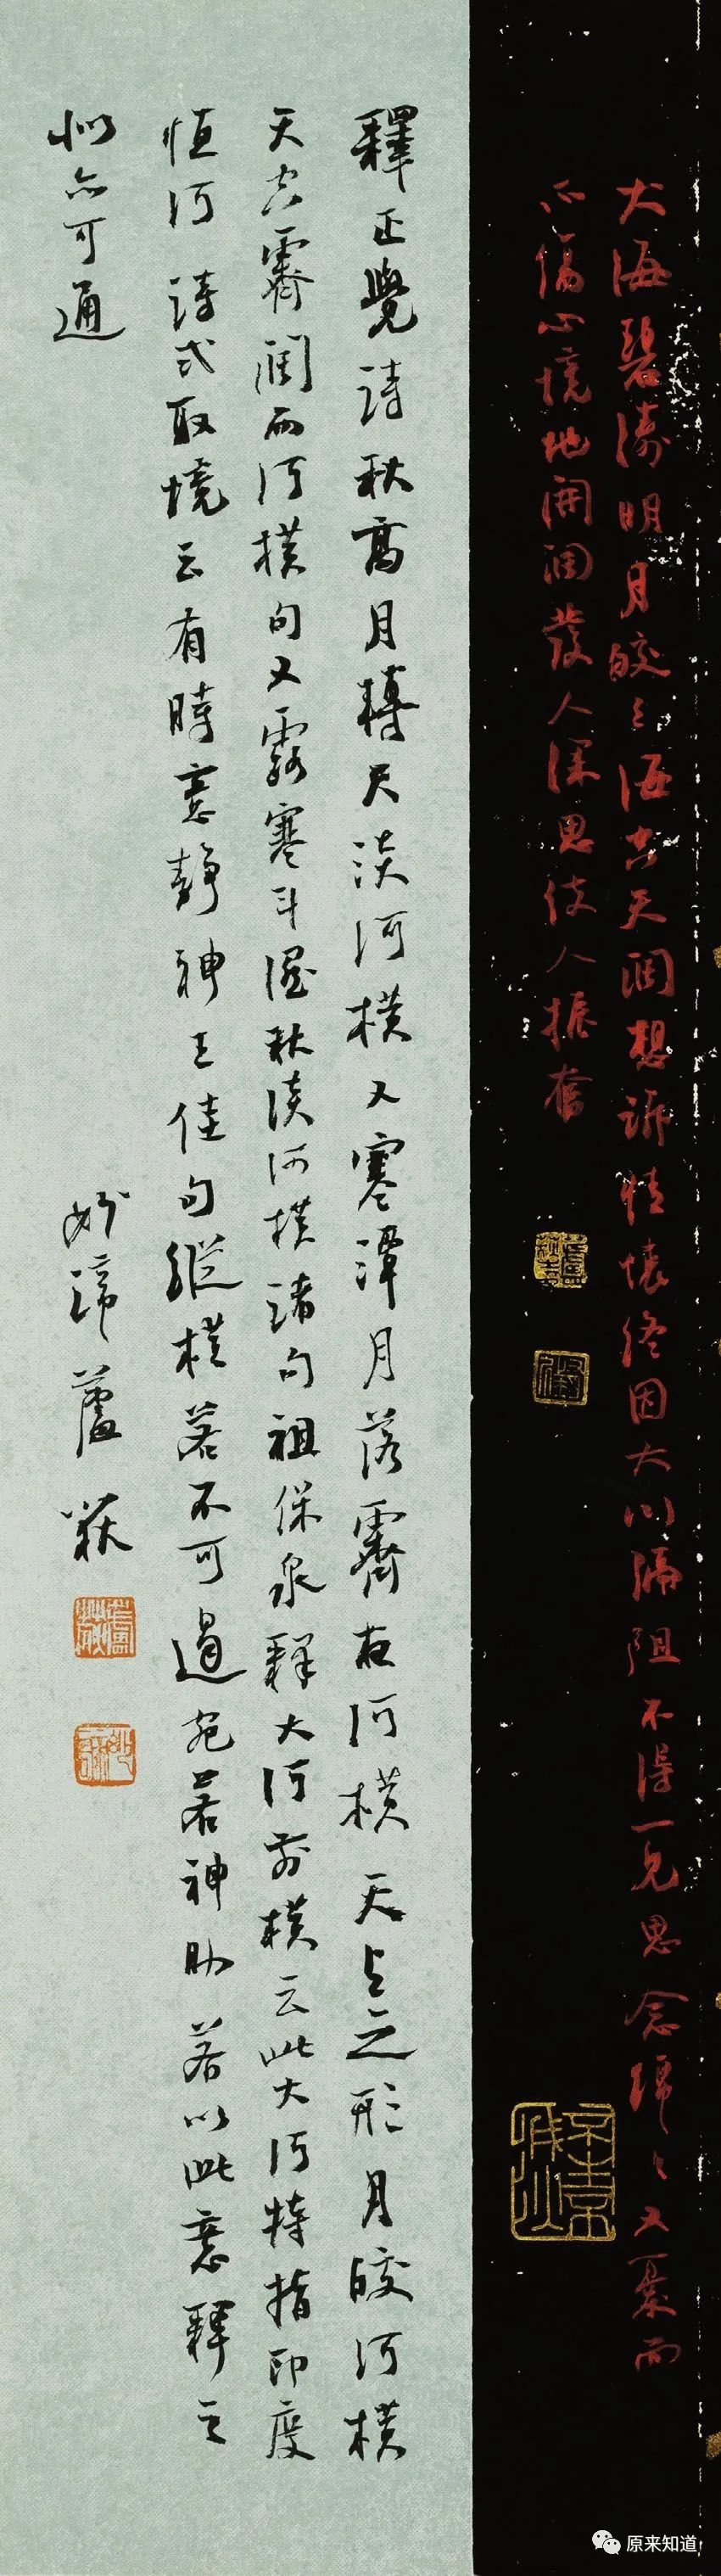 大海碧濤明月皎々海空天闊想訴情懷終因大川隔阻不得一見思念綿々又哀而
不傷心境地開闊發人深思使人振奮
釋正覺詩秋高月轉天淡河橫又寒潭月落霽夜河橫天上之形月皎河橫
天空霽闊而河橫句又露寒斗溼秋淡河橫諸句祖保泉釋大河前橫云此大河特指印度
恒河詩式取境云有時意靜神王佳句縱橫若不可遏宛若神助若以此意釋之
似亦可通
妙諦蘆荻
原来知道